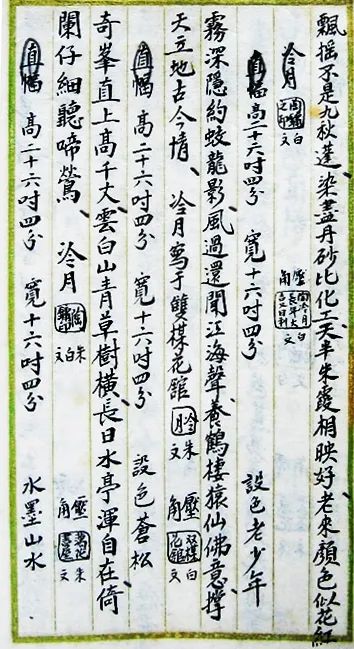 飄搖不是九秋蓬、染盡丹砂比化工、天半朱霞相映好、老來顏色似花紅
冷月 白文 壓角 白文
直幅 高二十六吋四分 寬十六吋四分 設色老少年
霧深隱約蛟龍影、風過還聞江海聲、養鶴棲猿仙佛意、撐
天立地古今情、冷月寫于雙楳花館 朱文 壓角 雙楳花館 白文
直幅 高二十六吋四分 寬十六吋四分 設色蒼松
奇峯直上高千丈、雲白山青草樹橫、長日水亭渾自在、倚
闌仔細聽啼鶯、冷月 朱白文 壓角 朱文
直幅 高二十六吋四分 寬十六吋四分 水墨山水